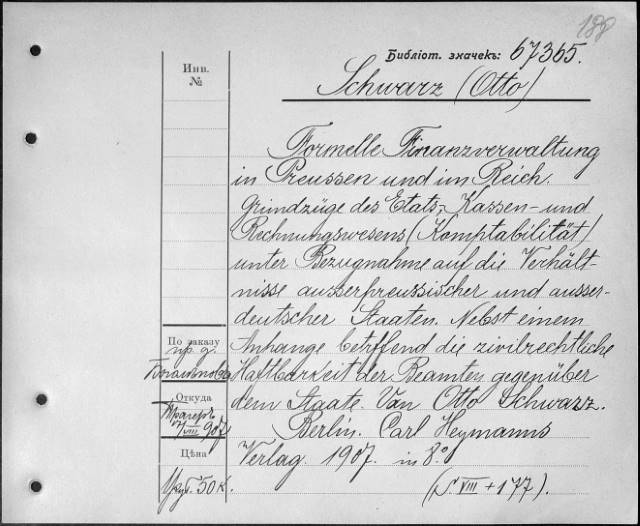 188
Библіот. значекъ: 67365.
Инв.
№
Schwarz (Otto)
Formelle Finanzverwaltung
in Preussen und im Reich.
Grundzüge des Etats-, Kassen- und
Rechnungswesens (Komptabilität)
unter Bezugnahme auf die Verhält-
nisse ausserpreussischer und ausser-
deutscher Staaten. Nebst einem
Anhange betreffend die zivilrechtliche
Haftbarkeit der Beamten gegenüber
dem Staate. Van Otto Schwarz.
Berlin. Carl Heymanns
Verlag. 1907. in 8.º
(S VIII + 177).
По заказу
пр. д.
Откуда
Трагеръ.
17/VIII 907
Цѣна
1 руб. 50 к.